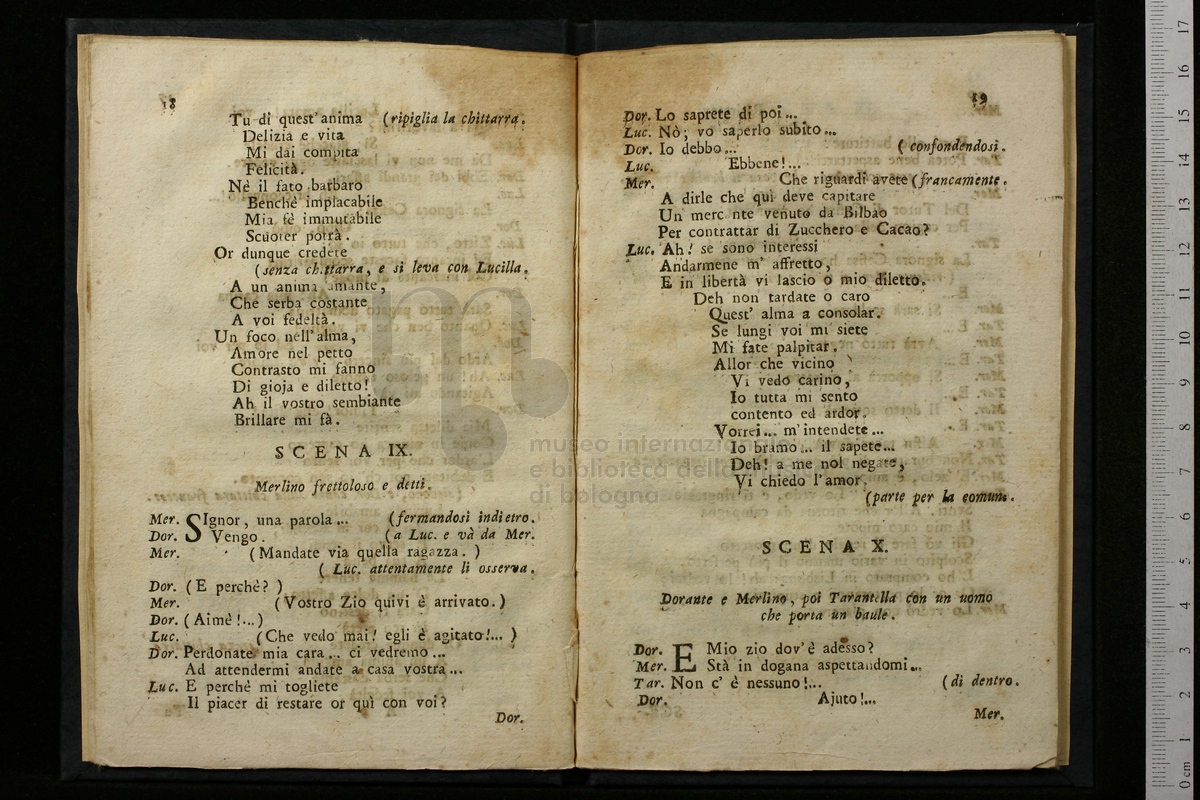 18
Tu di quest' anima (ripiglia la chittarra.
Delizia e vita
Mi dai compita
Felicità.
Nè il fato barbaro
Benchè implacabile
Mia fè immutabile
Scuoter potrà.
Or dunque credete
(senza chittarra, e si leva con Lucilla.
A un anima amante,
Che serba costante
A voi fedeltà.
Un foco nell' alma,
Amore nel petto
Contrasto mi fanno
Di gioja e diletto!
Ah il vostro sembiante
Brillare mi fà.
SCENA IX.
Merlino frettoloso e detti.
Mer. SIgnor, una parola... (fermandosi indietro.
Dor. Vengo. (a Luc. e và da Mer.
Mer. (Mandate via quella ragazza.)
(Luc. attentamente li osserva.
Dor. (E perchè?)
Mer. (Vostro Zio quivi è arrivato.)
Dor. (Aimè!...)
Luc. (Che vedo mai! egli è agitato!...)
Dor. Perdonate mia cara... ci vedremo...
Ad attendermi andate a casa vostra...
Luc. E perchè mi togliete
Il piacer di restare or quì con voi?
Dor.
19
Dor. Lo saprete di poi...
Luc. Nò; vo saperlo subito...
Dor. Io debbo... (confondendosi.
Luc. Ebbene!...
Mer. Che riguardi avete (francamente.
A dirle che quì deve capitare
Un merc nte venuto da Bilbao
Per contrattar di Zucchero e Cacao?
Luc. Ah! se sono interessi
Andarmene m' affretto,
E in libertà vi lascio o mio diletto.
Deh non tardate o caro
Quest' alma a consolar.
Se lungi voi mi siete
Mi fate palpitar.
Allor che vicino
Vi vedo carino,
Io tutta mi sento
contento ed ardor.
Vorrei... m' intendete...
Io bramo... il sapete...
Deh! a me nol negate,
Vi chiedo l' amor.
(parte per la comune.
SCENA X.
Dorante e Merlino, poi Tarantella con un uomo
che porta un baule.
Dor. E Mio zio dov' è adesso?
Mer. Stà in dogana aspettandomi...
Tar. Non c' è nessuno!... (di dentro.
Dor. Ajuto!...
Mer.
museo internazionale
e biblioteca della
di bologna